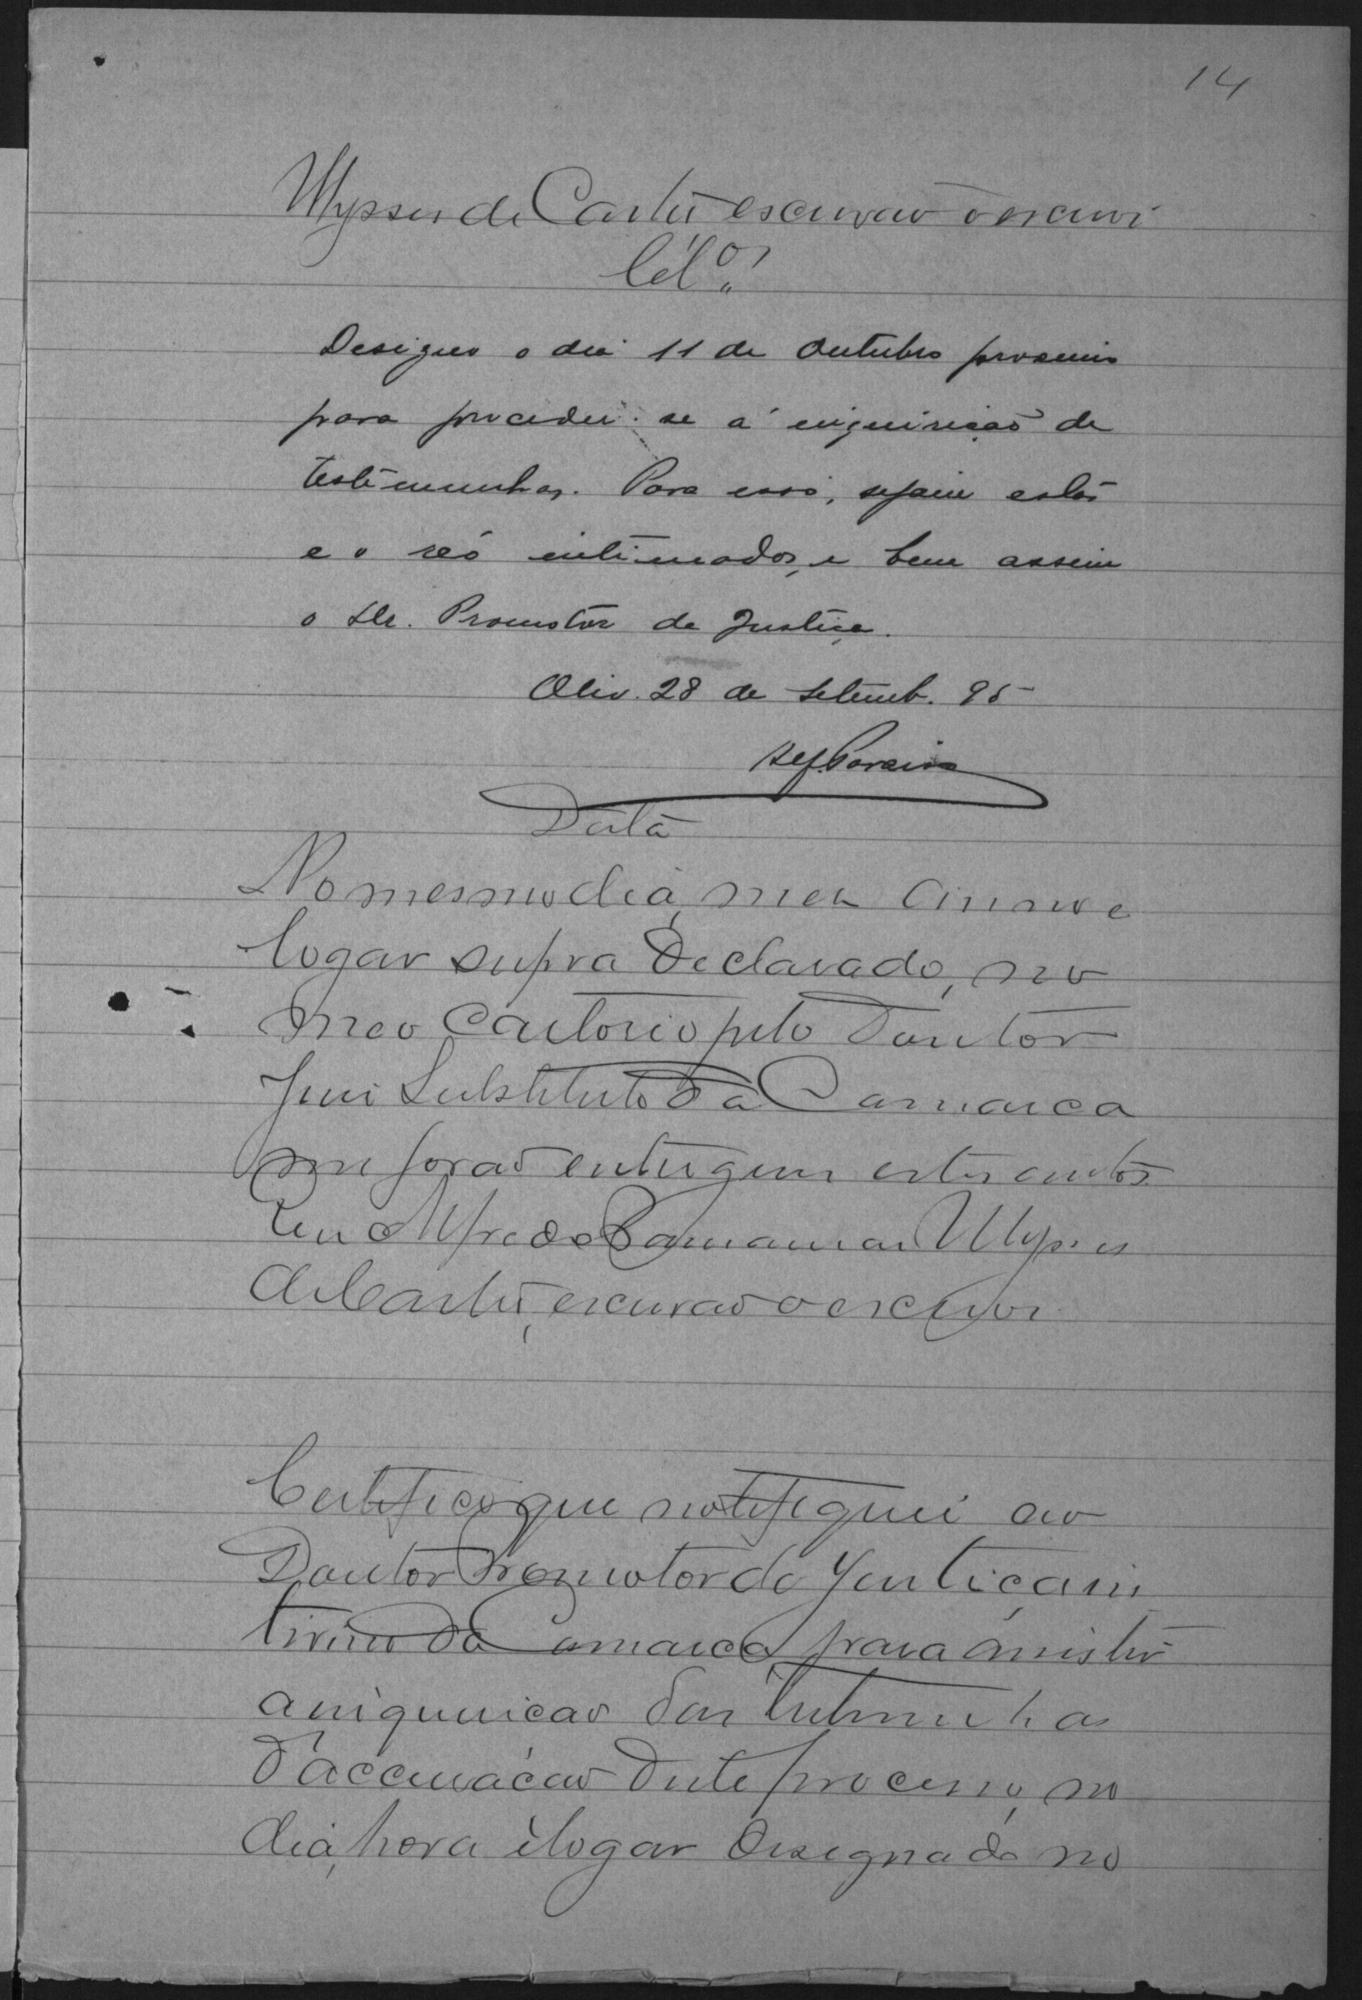 14
Ulysses de Castro escrivão o escrevi
Cls.
Designo o dia 11 de Outubro proximo
para proceder-se á inquirição de
testemunhas. Para isso, sejam estas
e o réo intimados, e bem assim
o Dr. Promotor de Justiça.
Oliv. 28 de Setemb. 95
Pereira
Data
No mesmo dia, mez anno e
logar supra declarado, no
meo cartorio pelo Doutor
Juiz Substituto da Comarca
me forão entregues estes autos
Eu Alfredo Ulysses
de Castro, escrivão o escrevi
Certifico que notifiquei ao
Doutor Promotor de Justiça in
terino da Comarca para assistir
a inquirição das testemunhas
d'accusação deste processo, no
dia, hora e logar designado no